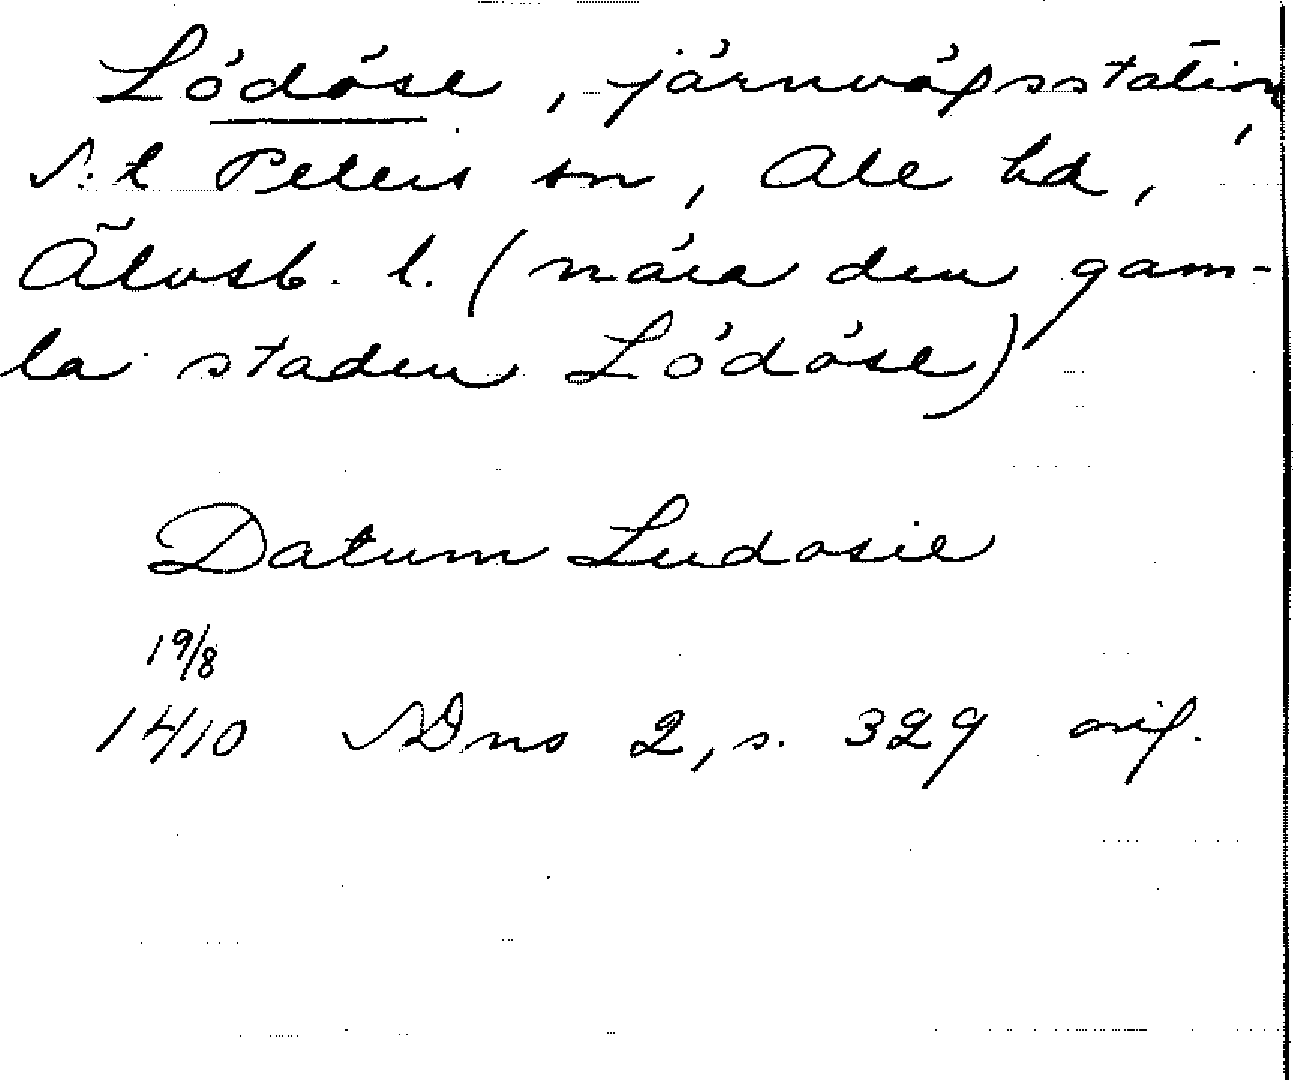 Lödöse, järnvägsstation,
S:t Peters sn, Ale hd,
Älvsb. l. (nära den gam-
la staden Lödöse)
Datum Ludosie
19/8
1410 SDns 2, s. 329 orig.